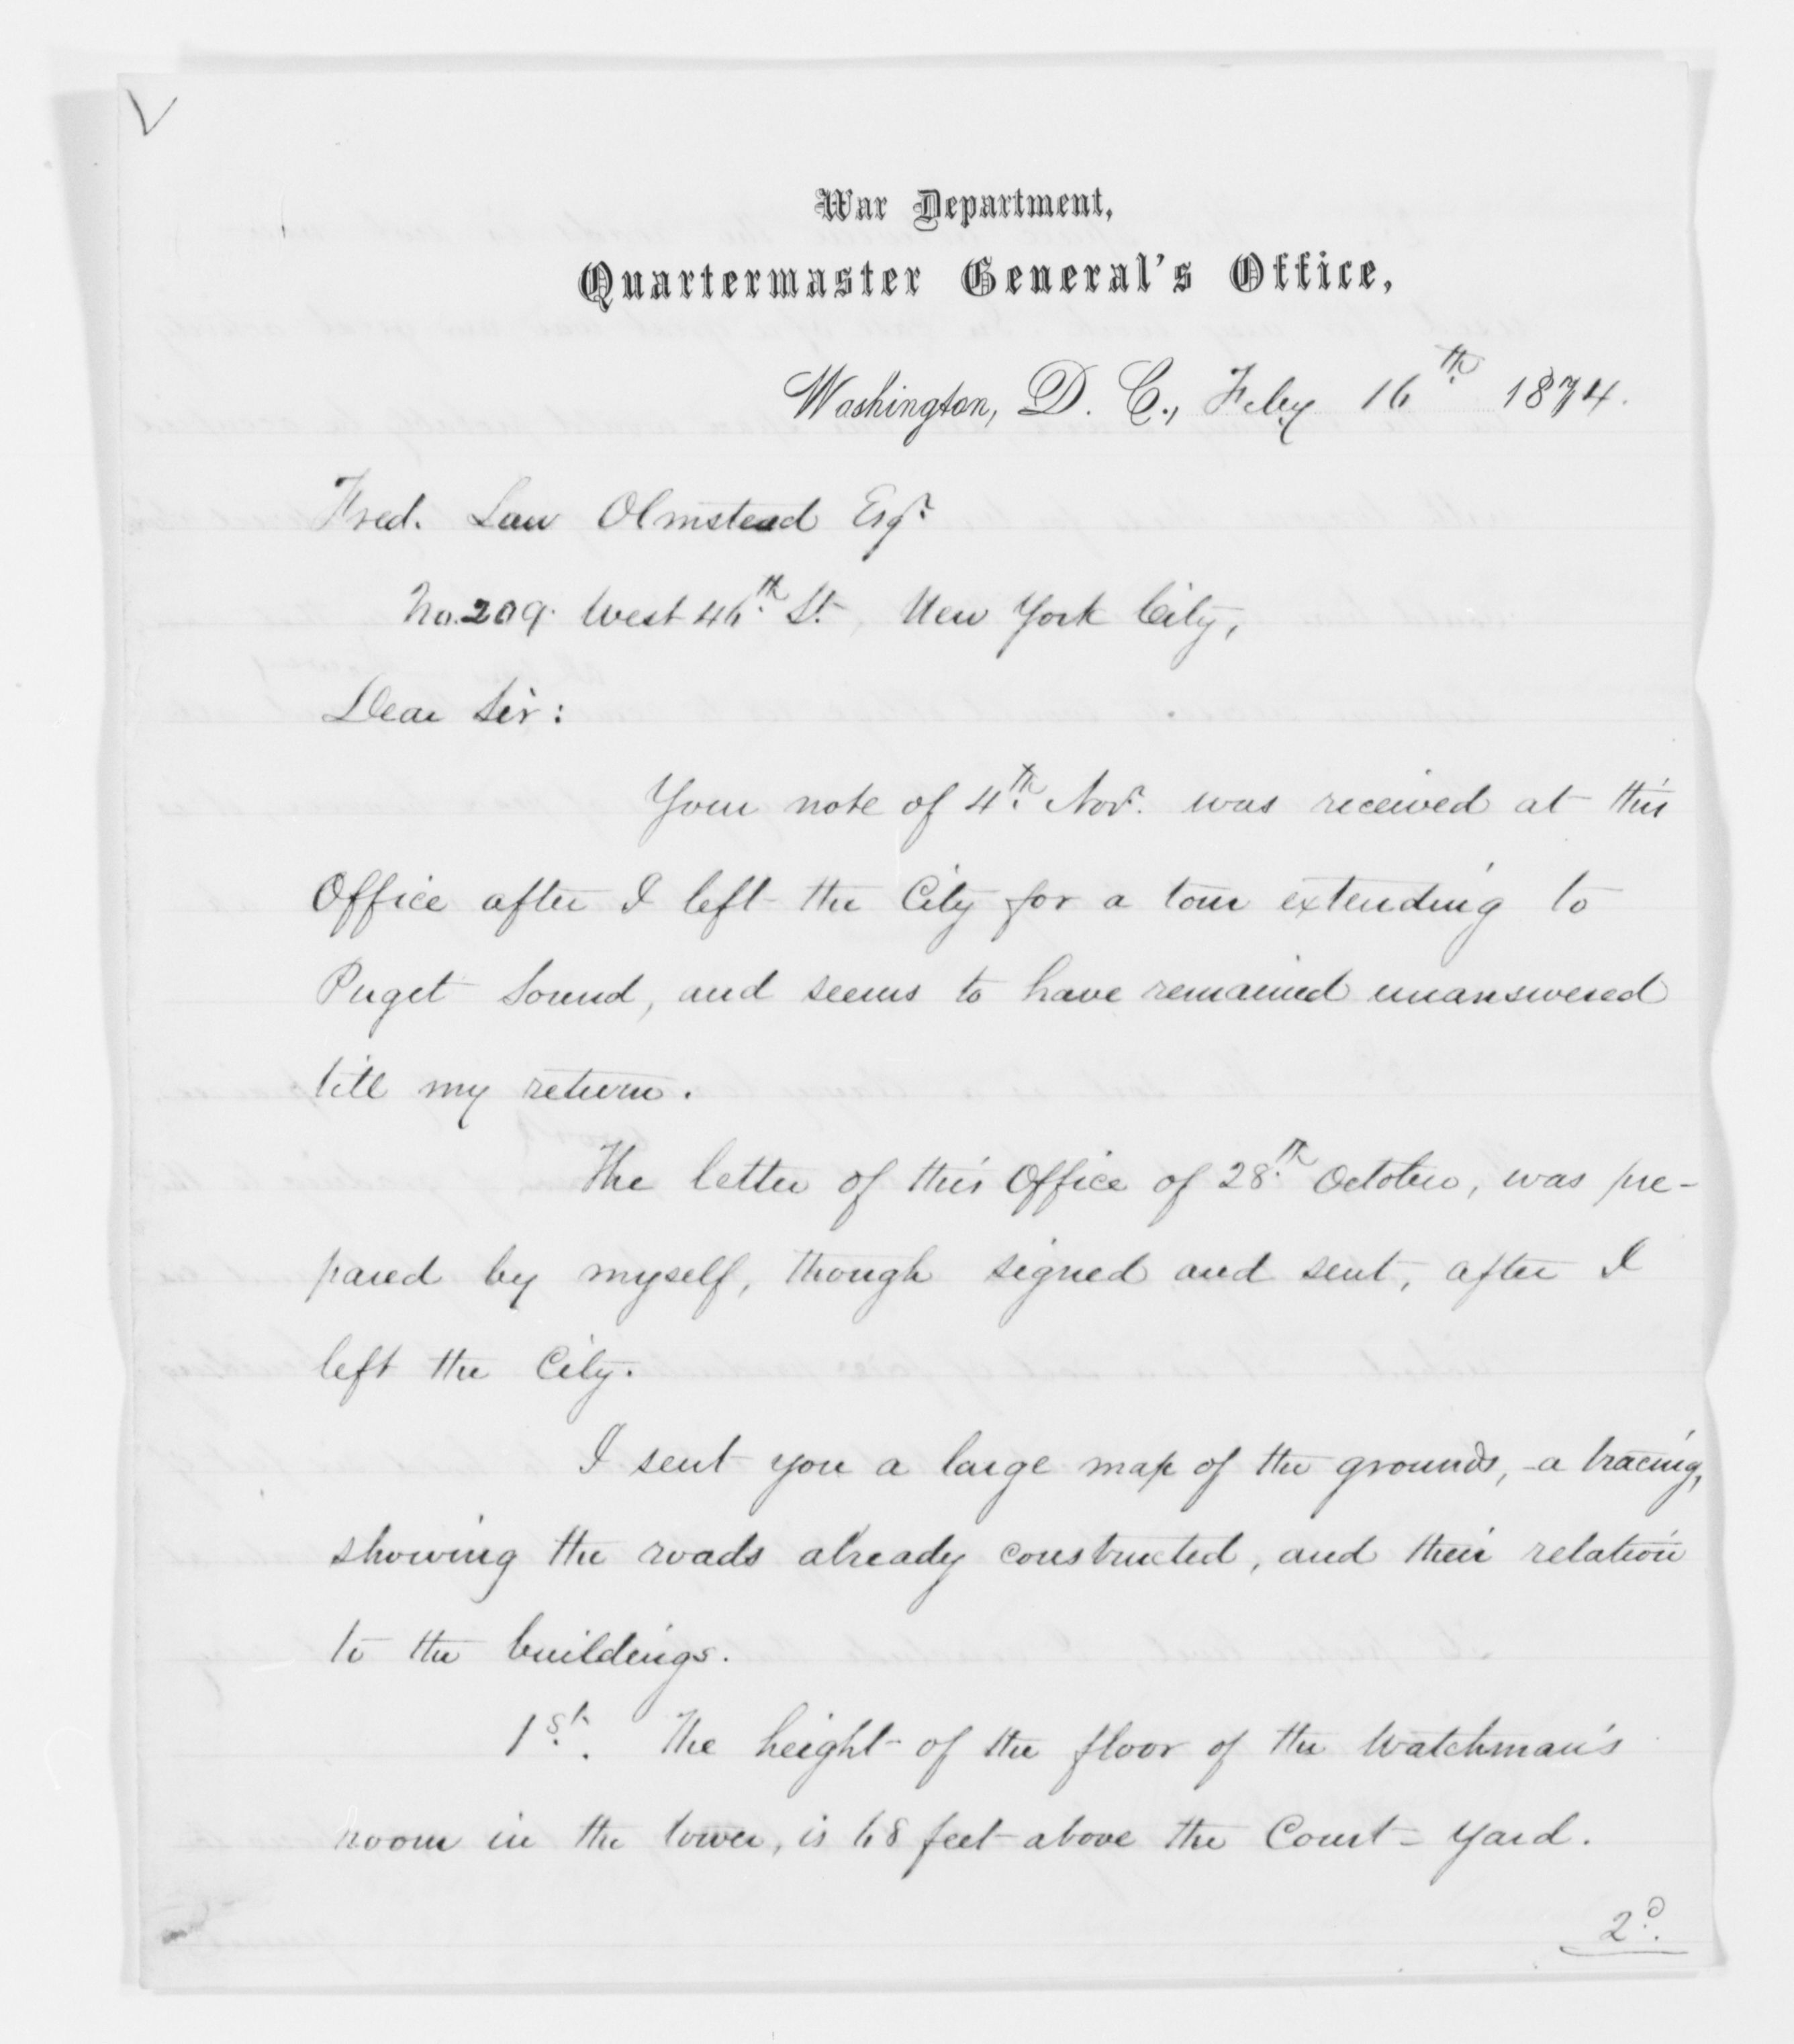 War Department,
Quartermaster General's Office,
Washington, D. C., Feby 16th 1874.
Fred. Law Olmstead Esqr.
No. 209. West 46th St., New York City,
Dear Sir:
Your note of 4th Novr. was received at this
Office after I left the City for a tour extending to
Puget Sound, and seems to have remained unanswered
till my return.
The letter of this Office of 28th October, was pre-
pared by myself, though signed and sent, after I
left the City.
I sent you a large map of the grounds, - a tracing,
showing the roads already constructed, and their relation
to the buildings.
1st. The height of the floor of the Watchman's
room in the tower, is 68 feet above the Court-yard.
2d.